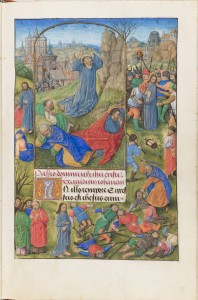 Passio domini nostri ihesu criste
secundum iohannem
In illo tempore Egres
sus est ihesus cum